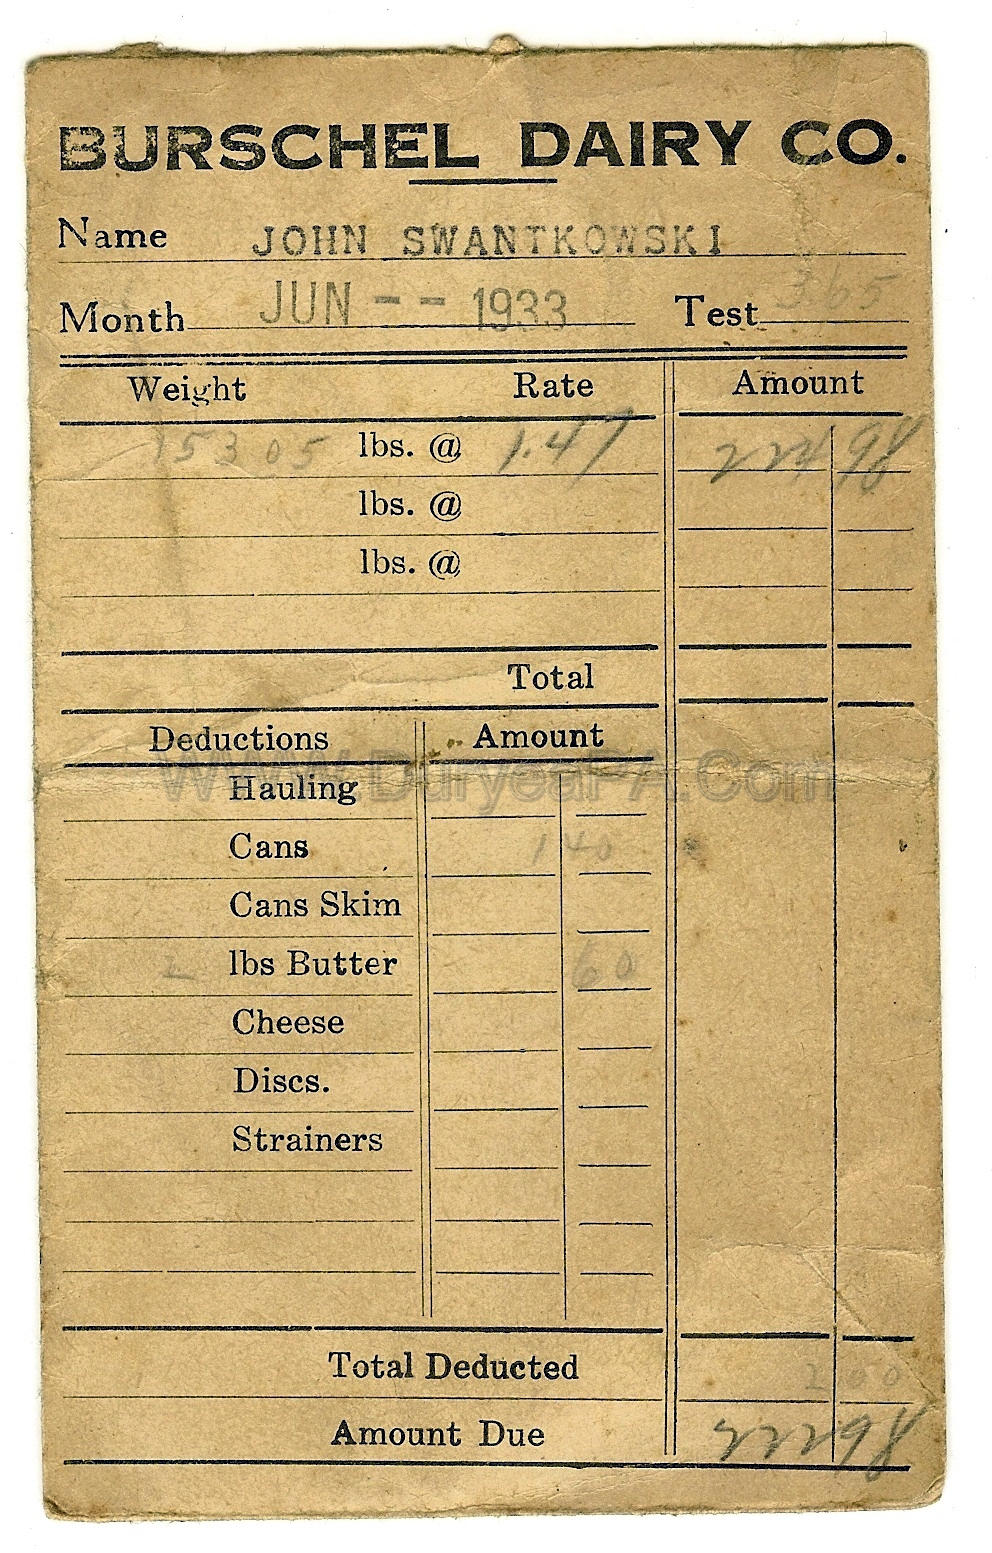 BURSCHEL DAIRY CO.
Name JOHN SWANTKOWSKI
Month JUN -- 1933 Test 365
Weight Rate Amount
15305 lbs. @ 1.47 224 98
lbs. @
lbs. @
Total
Deductions Amount
www.DuryeaPA.Com
Hauling
Cans 1 40
Cans Skim
2 lbs Butter 60
Cheese
Discs.
Strainers
Total Deducted 2 00
Amount Due 222 98